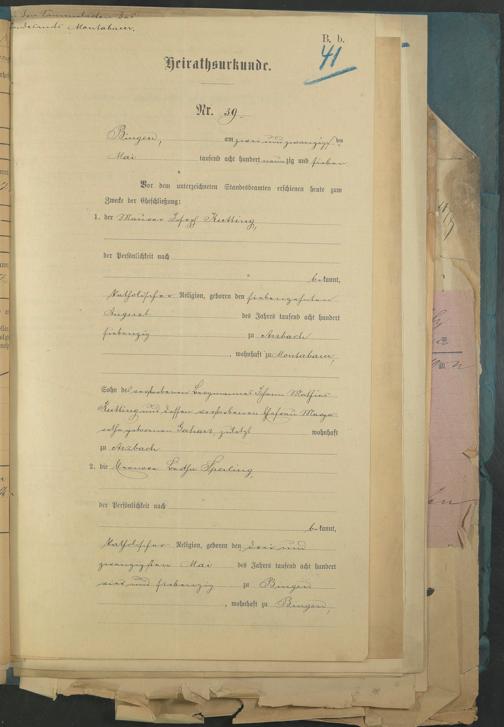 Montabaur.
B. b.
41
Heirathsurkunde.
Nr. 39.
Bingen, am zwei und zwanzigsten
Mai tausend acht hundert neunzig und sieben
Vor dem unterzeichneten Standesbeamten erschienen heute zum
Zwecke der Eheschließung:
1. der Maurer Josef Kutting,
der Persönlichkeit nach
bekannt,
katholischer Religion, geboren den siebenzehnten
August des Jahres tausend acht hundert
siebenzig zu Arzbach
, wohnhaft zu Montabaur,
Sohn des verstorbenen Bergmannes Johann Mathias
Kutting und dessen verstorbenen Ehefrau Marga
retha geborenen zuletzt wohnhaft
zu Arzbach
2. die Sperling,
der Persönlichkeit nach
bekannt,
katholischer Religion, geboren den drei und
zwanzigsten Mai des Jahres tausend acht hundert
vier und siebenzig zu Bingen
, wohnhaft zu Bingen,